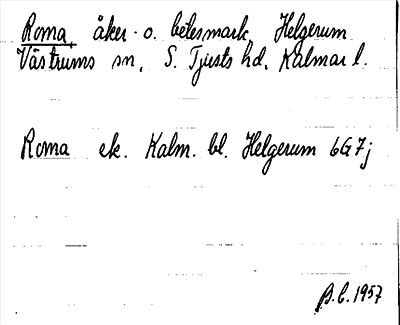 Roma, åker- o. betesmark, Helgerum
Västrums sn, S. Tjusts hd, Kalmar l.
Roma ek. Kalm. bl. Helgerum 6G7j
B.C. 1957